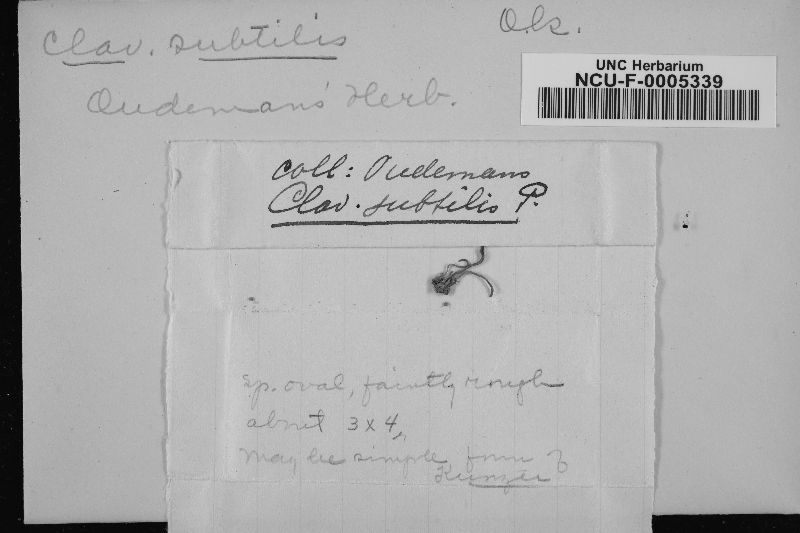 O.k.
Clav. subtilis
UNC Herbarium
NCU-F-0005339
Oudemans' Herb.
coll: Oudemans
Clav. subtilis P.
Sp. oval, faintly rough
about 3 x 4
May be simple form of
Kunzei